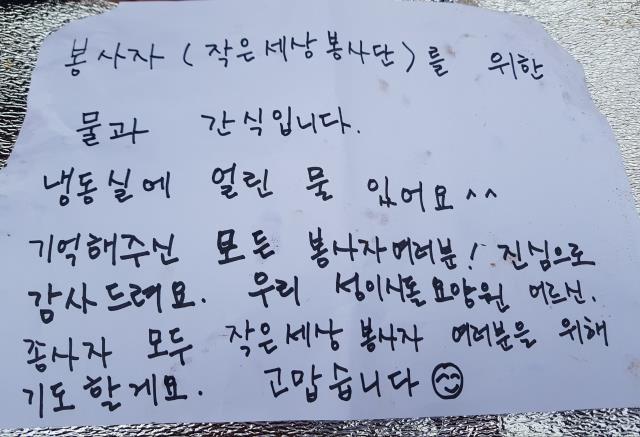 봉사자 (작은세상봉사단)를 위한
물과 간식입니다.
냉동실에 얼린 물 있어요^^
기억해주신 모든 봉사자여러분! 진심으로
감사드려요. 우리 성이시돌요양원 어르신.
종사자 모두 작은세상 봉사자 여러분을 위해
기도할게요. 고맙습니다